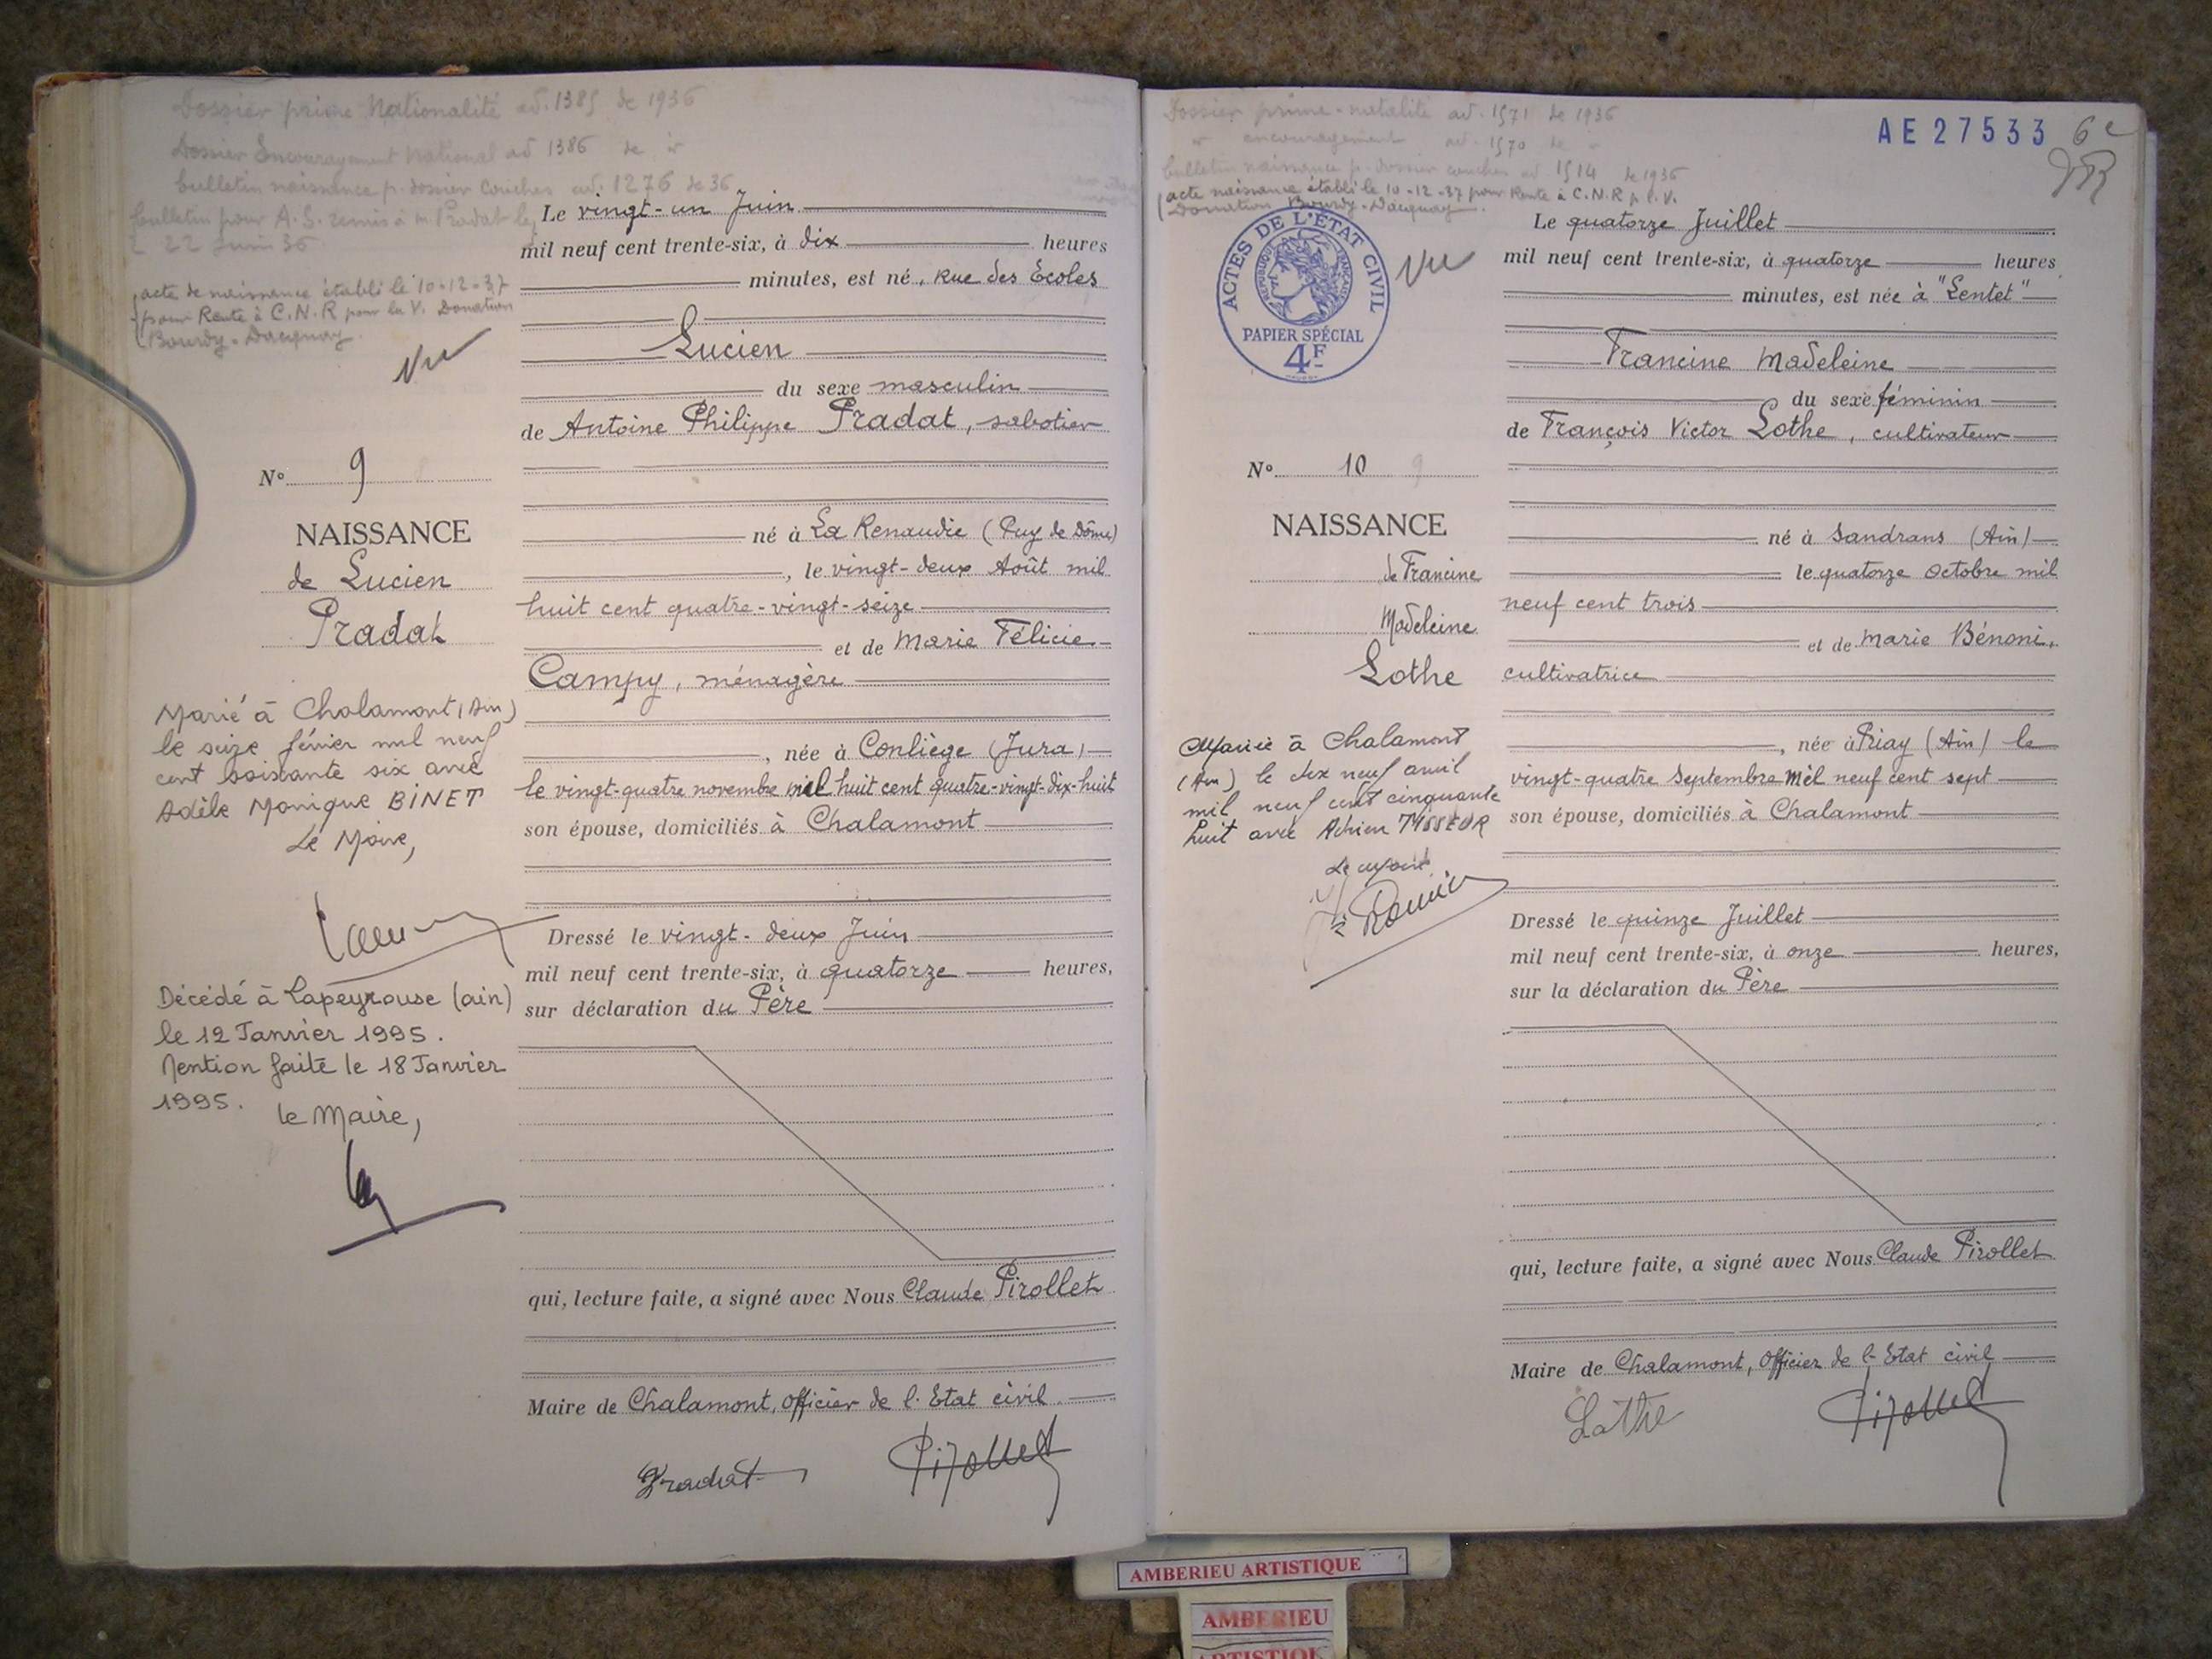 Dossier prime Nationalité ad. 1385 de 1936
Dossier Encouragement national ad 1386 de
bulletin naissance p. dossier couches ad. 1276 de 36
bulletin pour A.S. remis à m. Pradat le
22 Juin 36
acte de naissance établi le 10-12-37
pour Rente à C.N.R pour la V. Donation
Bourdy-Dacquay
Vu
N° 9
NAISSANCE
de Lucien
Pradat
Marié à Chalamont (Ain)
le seize février mil neuf
cent soixante six avec
Adèle Monique BINET
Le Maire,
Décédé à Lapeyrouse (ain)
le 12 Janvier 1995.
Mention faite le 18 Janvier
1995.
le Maire,
Le vingt-un Juin
mil neuf cent trente-six, à dix heures
minutes, est né, Rue des Ecoles
Lucien
du sexe masculin
de Antoine Philippe Pradat, sabotier
né à La Renaudie (Puy de Dôme)
, le vingt-deux Août mil
huit cent quatre-vingt-seize
et de Marie Félicie
Campy, ménagère
, née à Conliège (Jura)
le vingt-quatre novembre mil huit cent quatre-vingt-dix-huit
son épouse, domiciliés à Chalamont
Dressé le vingt-deux Juin
mil neuf cent trente-six, à quatorze heures,
sur déclaration du Père
qui, lecture faite, a signé avec Nous Claude Pirollet
Maire de Chalamont, Officier de l'Etat civil
Pradat Pirollet
Dossier prime-natalité ad. 1571 de 1936
encouragement ad. 1570 de
bulletin naissance p. dossier couches ad 1514 de 1936
acte naissance établi le 10-12-37 pour Rente à C.N.R p. l. V.
Donation Bourdy-Dacquay
AE 27533
6e
ACTES DE L'ÉTAT CIVIL
RÉPUBLIQUE FRANÇAISE
PAPIER SPÉCIAL
4F
Vu
N° 10
NAISSANCE
de Francine
Madeleine
Lothe
Mariée à Chalamont
(Ain) le dix neuf avril
mil neuf cent cinquante
huit avec Adrien TISSEUR
Le Maire
Le quatorze Juillet
mil neuf cent trente-six, à quatorze heures
minutes, est née à "Lentet"
Francine Madeleine
du sexe féminin
de François Victor Lothe, cultivateur
né à Sandrans (Ain)
le quatorze octobre mil
neuf cent trois
et de Marie Bénoni,
cultivatrice
, née à Priay (Ain) le
vingt-quatre Septembre mil neuf cent sept
son épouse, domiciliés à Chalamont
Dressé le quinze Juillet
mil neuf cent trente-six, à onze heures,
sur la déclaration du Père
qui, lecture faite, a signé avec Nous Claude Pirollet
Maire de Chalamont, Officier de l'Etat civil
Lothe Pirollet
AMBERIEU ARTISTIQUE
AMBERIEU
ARTISTIQUE